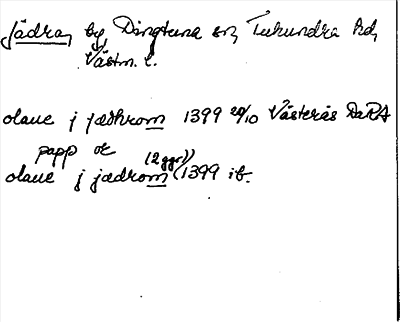 Jädra, by, Dingtuna sn, Tuhundra hd,
Västm. l.
olaue j jædhrom 1399 20/10 Västerås DaRA
papp or
olaue j jædrom (2 ggr) 1399 ib.